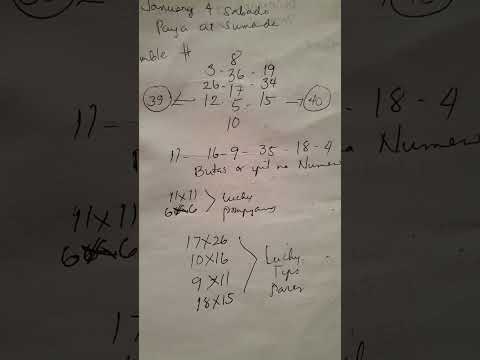 January 4 sabado
Paya at sumada
mble #
8
3 - 36 - 19
26 - 17 - 34
39 12 - 5 - 15 40
10
17 - 16 - 9 - 35 - 18 - 4
Butas or ipit na Numero
11 x 11
6 x 6
Lucky
pompyang
17 x 26
10 x 16
9 x 11
18 x 15
Lucky
Tips
pares